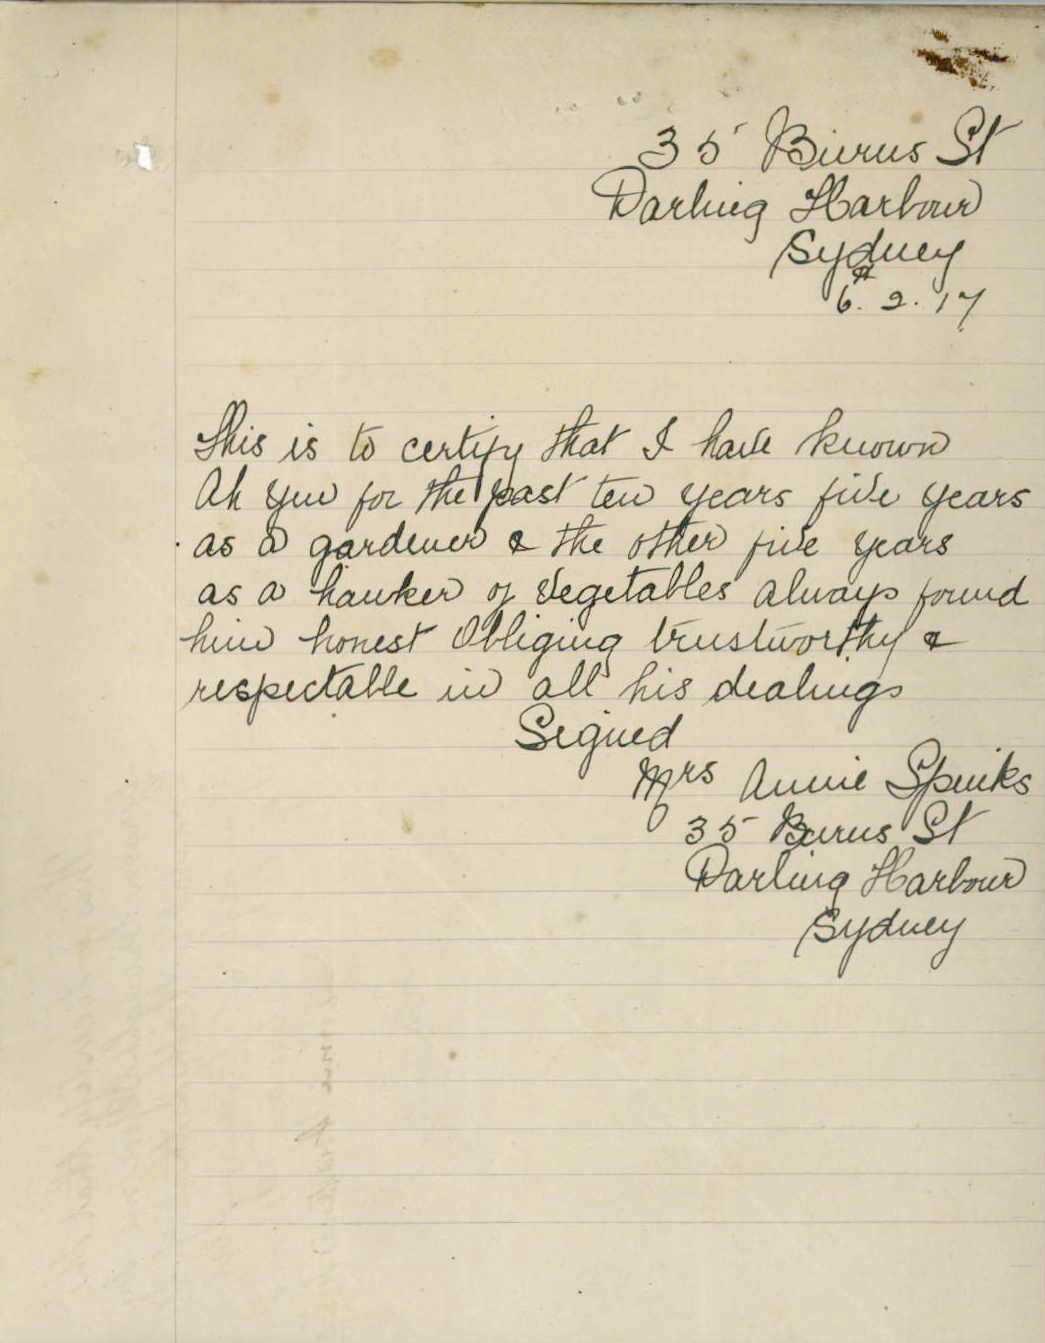 35 Burns St
Darling Harbour
Sydney
6th. 2. 17
This is to certify that I have known
Ah Yin for the past ten years five years
as a gardener & the other five years
as a hawker of vegetables always found
him honest obliging trustworthy &
respectable in all his dealings
Signed
Mrs Annie Spinks
35 Burns St
Darling Harbour
Sydney